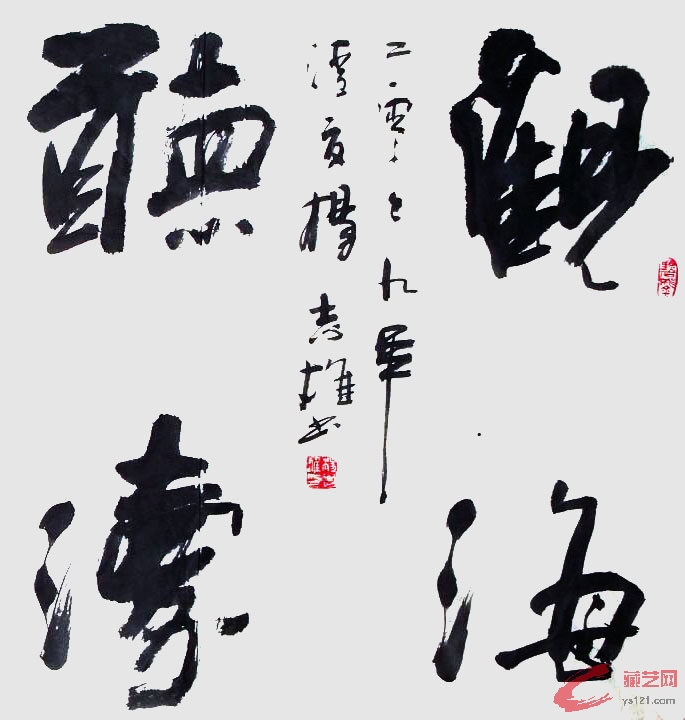 觀海
聽濤
二零零九年
清夏楊志雄书
藏艺网
ys121.com